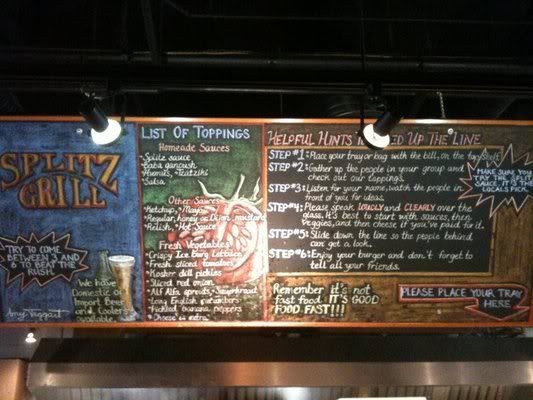 SPLITZ
GRILL
TRY TO COME
BETWEEN 3 AND
6 TO BEAT THE
RUSH.
We have
Domestic or
Import Beer
and Coolers
available.
Amy Taggart
LIST OF TOPPINGS
Homeade Sauces
• Splitz sauce
• Baba ganoush
• Humus, • Tzatziki
• Salsa
Other Sauces
• Ketchup, • Mayo
• Regular, honey or Dijon mustard
• Relish, • Hot Sauce
Fresh Vegetables
• Crispy Ice Burg Lettuce
• Fresh sliced tomatoes
• Kosher dill pickles
• Sliced red onion
• Alf Alfa sprouts, • Saurkraut
• Long English cucumbers
• Pickled banana peppers
• Cheese is extra
HELPFUL HINTS UP THE LINE
STEP #1: Place your tray or bag with the bill, on the top shelf
STEP #2: Gather up the people in your group and
check out our toppings.
STEP #3: Listen for your name, watch the people in
front of you for ideas.
STEP #4: Please speak LOUDLY and CLEARLY over the
glass. It's best to start with sauces, then
veggies, and then cheese if you've paid for it.
STEP #5: Slide down the line so the people behind
can get a look.
STEP #6: Enjoy your burger and don't forget to
tell all your friends.
MAKE SURE YOU
TRY THE SPLITZ
SAUCE. IT'S THE
LOCALS FAV
Remember it's not
fast food IT'S GOOD
FOOD FAST!!!
PLEASE PLACE YOUR TRAY
HERE